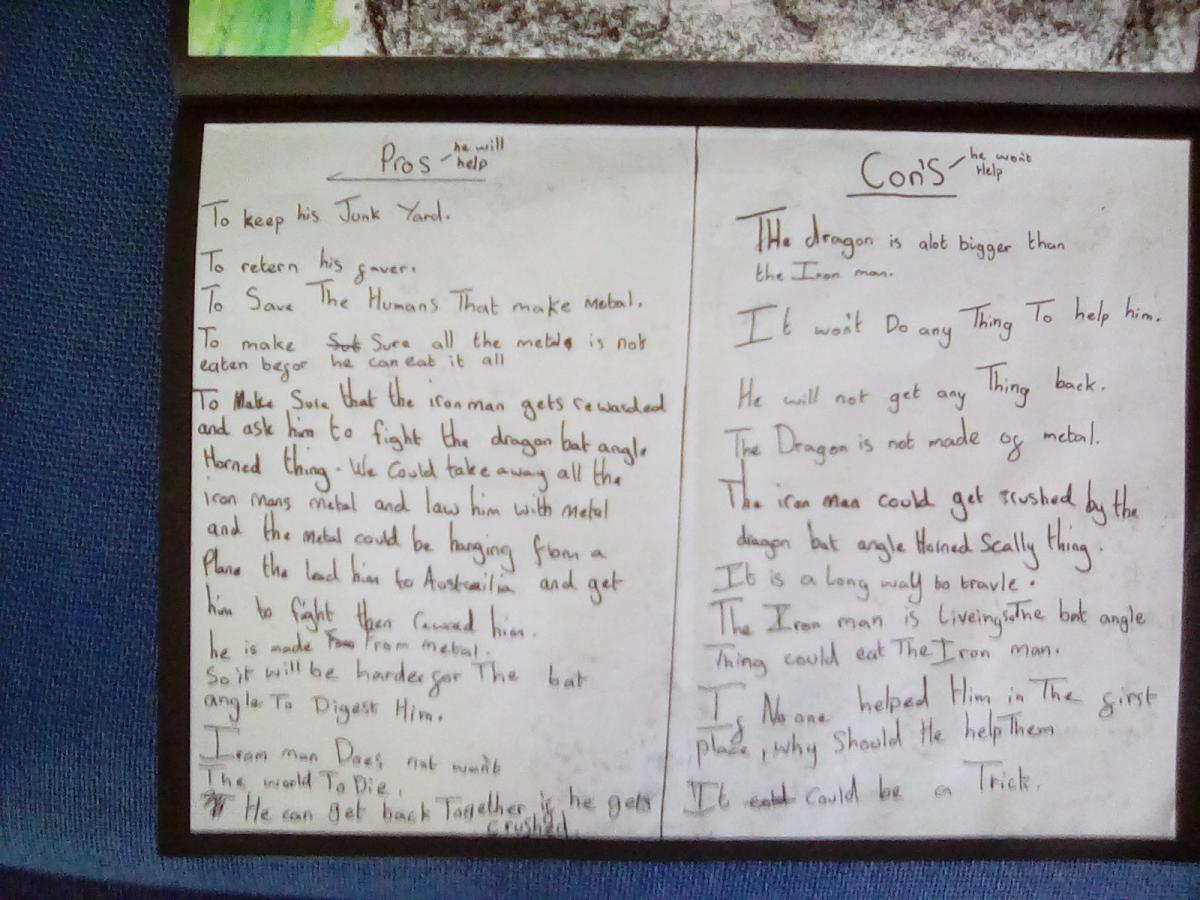 Pros
he will
help
To keep his Junk Yard.
To retern his faver.
To Save The Humans That make Metal.
To make Sure all the metal is not
eaten befor he can eat it all
To Make Sure that the iron man gets rewarded
and ask him to fight the dragon bat angle
Horned thing. We Could take away all the
iron mans metal and law him with metal
and the metal could be hanging from a
Plane the lead him to Austrailia and get
him to fight then reward him.
he is made From metal.
So it will be harder for The bat
angle To Digest Him.
Iron man Does not want
The world To Die.
He can get back Together if he gets
crushed.
Con's
he won't
Help
THe dragon is alot bigger than
the Iron man.
It won't Do any Thing To help him.
He will not get any Thing back.
The Dragon is not made of metal.
The iron man could get crushed by the
dragon bat angle Horned Scally thing.
It is a Long way to travle.
The Iron man is Liveing so The bat angle
Thing could eat The Iron man.
If No one helped Him in The first
place, why Should He help Them
It Could be a Trick.